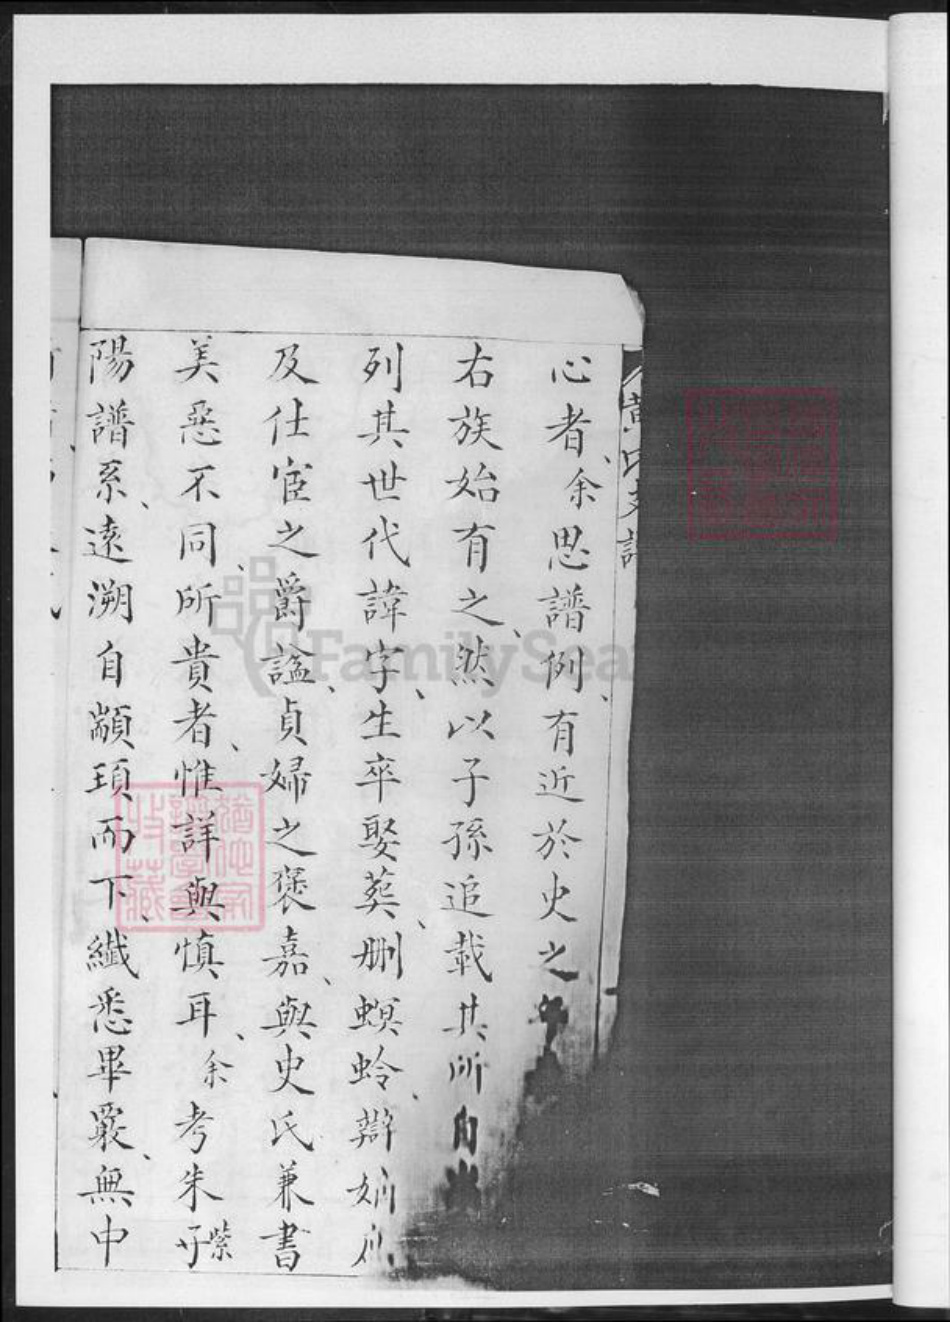 黄氏支譜
心者余思譜例有近於史之
右族始有之然以子孫追載其所自
列其世代諱字生卒娶葬刪螟蛉辯嫡
及仕宦之爵謚貞婦之褒嘉與史氏兼書
美惡不同所貴者惟詳與慎耳余考朱子紫
陽譜系遠溯自顓頊而下纖悉畢嚴無中
譜學會
收藏
FamilySea